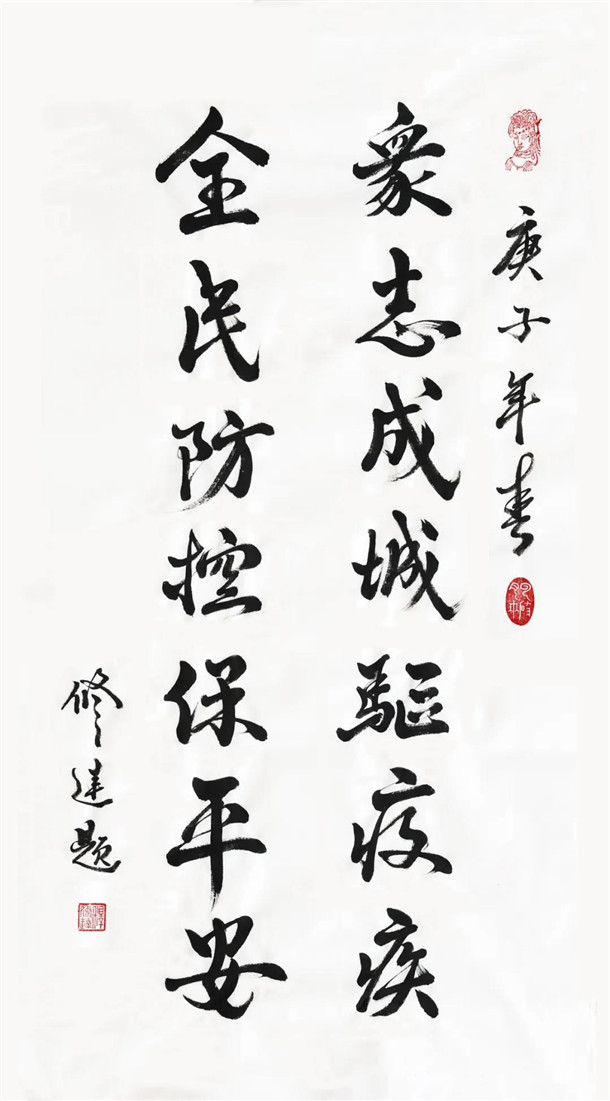 庚子年春
衆志成城驅疫疾
全民防控保平安
修達題